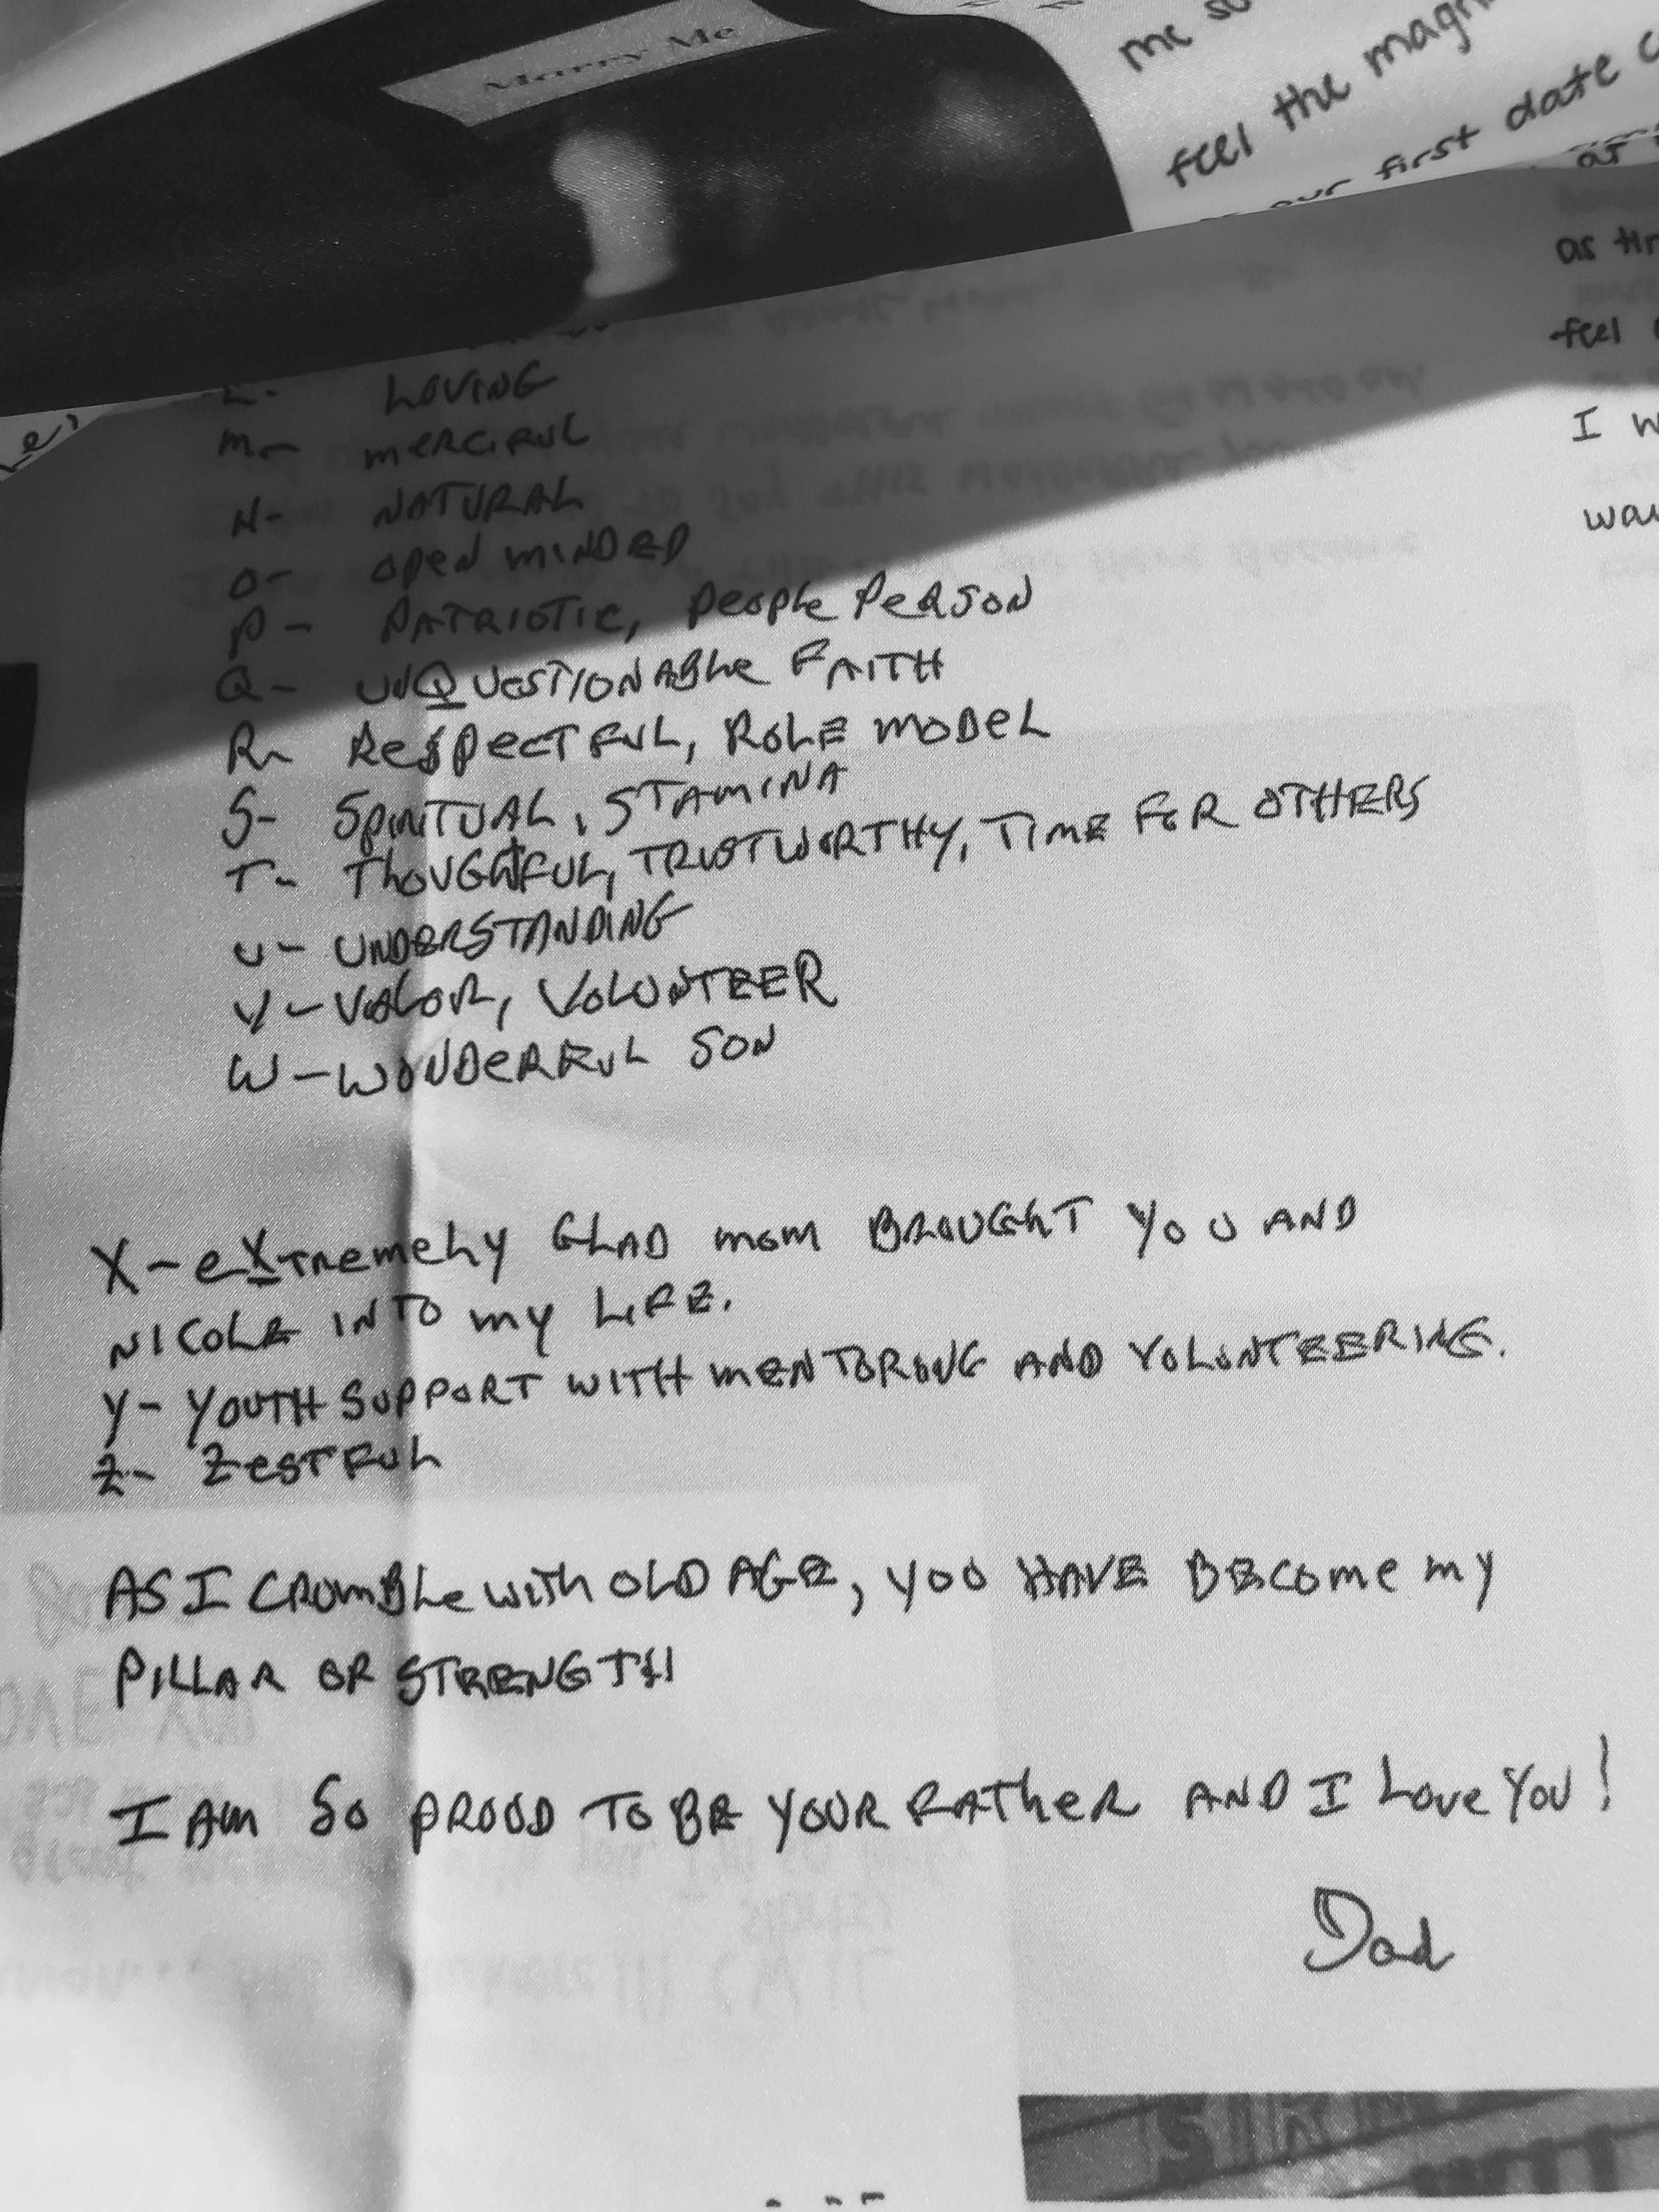 Marry Me
me so
feel the magn
our first date
as
feel
I w
L- LOVING
M- MERCIFUL
N- NATURAL
O- OPEN MINDED
P- PATRIOTIC, PEOPLE PERSON
Q- UNQUESTIONABLE FAITH
R- RESPECTFUL, ROLE MODEL
S- SPIRITUAL, STAMINA
T- THOUGHTFUL, TRUSTWORTHY, TIME FOR OTHERS
U- UNDERSTANDING
V- VALOR, VOLUNTEER
W- WONDERFUL SON
X- EXTREMELY GLAD MOM BROUGHT YOU AND
NICOLE INTO MY LIFE.
Y- YOUTH SUPPORT WITH MENTORING AND VOLUNTEERING.
Z- ZESTFUL
AS I CRUMBLE WITH OLD AGE, YOU HAVE BECOME MY
PILLAR OF STRENGTH
I AM SO PROUD TO BE YOUR FATHER AND I LOVE YOU!
Dad